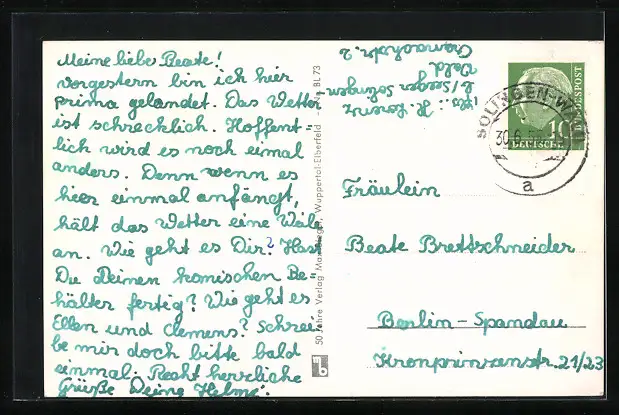 Meine liebe Beate!
vorgestern bin ich hier
prima gelandet. Das Wetter
ist schrecklich. Hoffent=
lich wird es noch einmal
anders. Denn wenn es
hier einmal anfängt,
hält das Wetter eine Weile
an. Wie geht es Dir? Hast
Du Deinen komischen Be=
hälter fertig? Wie geht es
Ellen und Clemens? Schrei=
be mir doch bitte bald
einmal. Recht herzliche
Grüße Deine Helma.
50 Jahre Verlag Wuppertal-Elberfeld BL 73
H. Lorentz
Solingen
Wald
SOLINGEN-WALD
30.6.
a
10
DEUTSCHE BUNDESPOST
Fräulein
Beate Brettschneider
Berlin-Spandau
Kronprinzenstr. 21/23